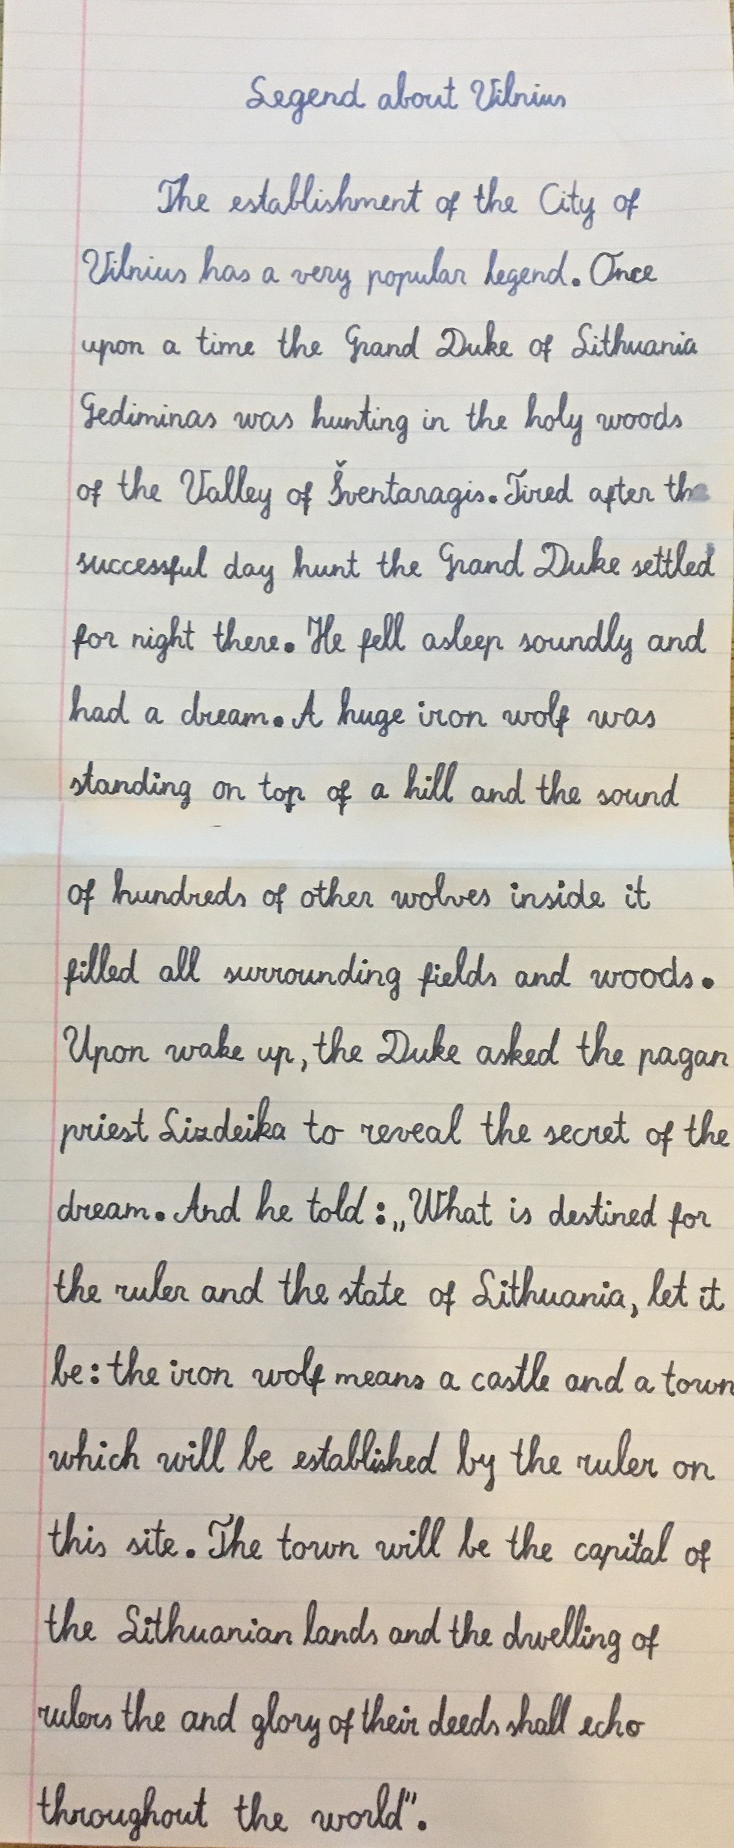 Legend about Vilnius
The establishment of the City of
Vilnius has a very popular legend. Once
upon a time the Grand Duke of Lithuania
Gediminas was hunting in the holy woods
of the Valley of Šventaragis. Tired after the
successful day hunt the Grand Duke settled
for night there. He fell asleep soundly and
had a dream. A huge iron wolf was
standing on top of a hill and the sound
of hundreds of other wolves inside it
filled all surrounding fields and woods.
Upon wake up, the Duke asked the pagan
priest Lizdeika to reveal the secret of the
dream. And he told: „What is destined for
the ruler and the state of Lithuania, let it
be: the iron wolf means a castle and a town
which will be established by the ruler on
this site. The town will be the capital of
the Lithuanian lands and the dwelling of
rulers the and glory of their deeds shall echo
throughout the world".